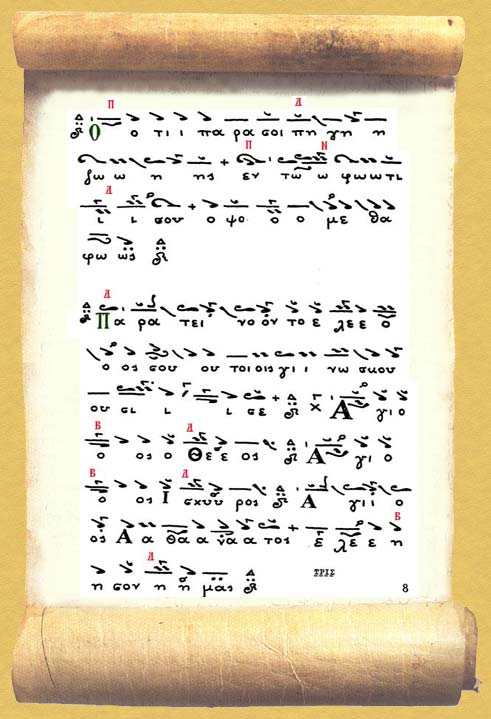 Ο ο τι ι πα ρα σοι πη γη η
ζω ω η ης εν τω ω φω ω τι
ι ι σου ο ψο ο ο με θα
φω ως
Πα ρα τει νο ον το ε λε ε ο
ο ος σου ου τοι οις γι ι νω σκου
ου σι ι ι σε χ Α γι ο
ο ος ο Θε ε ος Α γι ο
ο ος Ι σχυ υ ρος Α γι ι ο
ος Α α θα α να α τος ε λε ε η
η σον η η μας ΤΡΙΣ 8